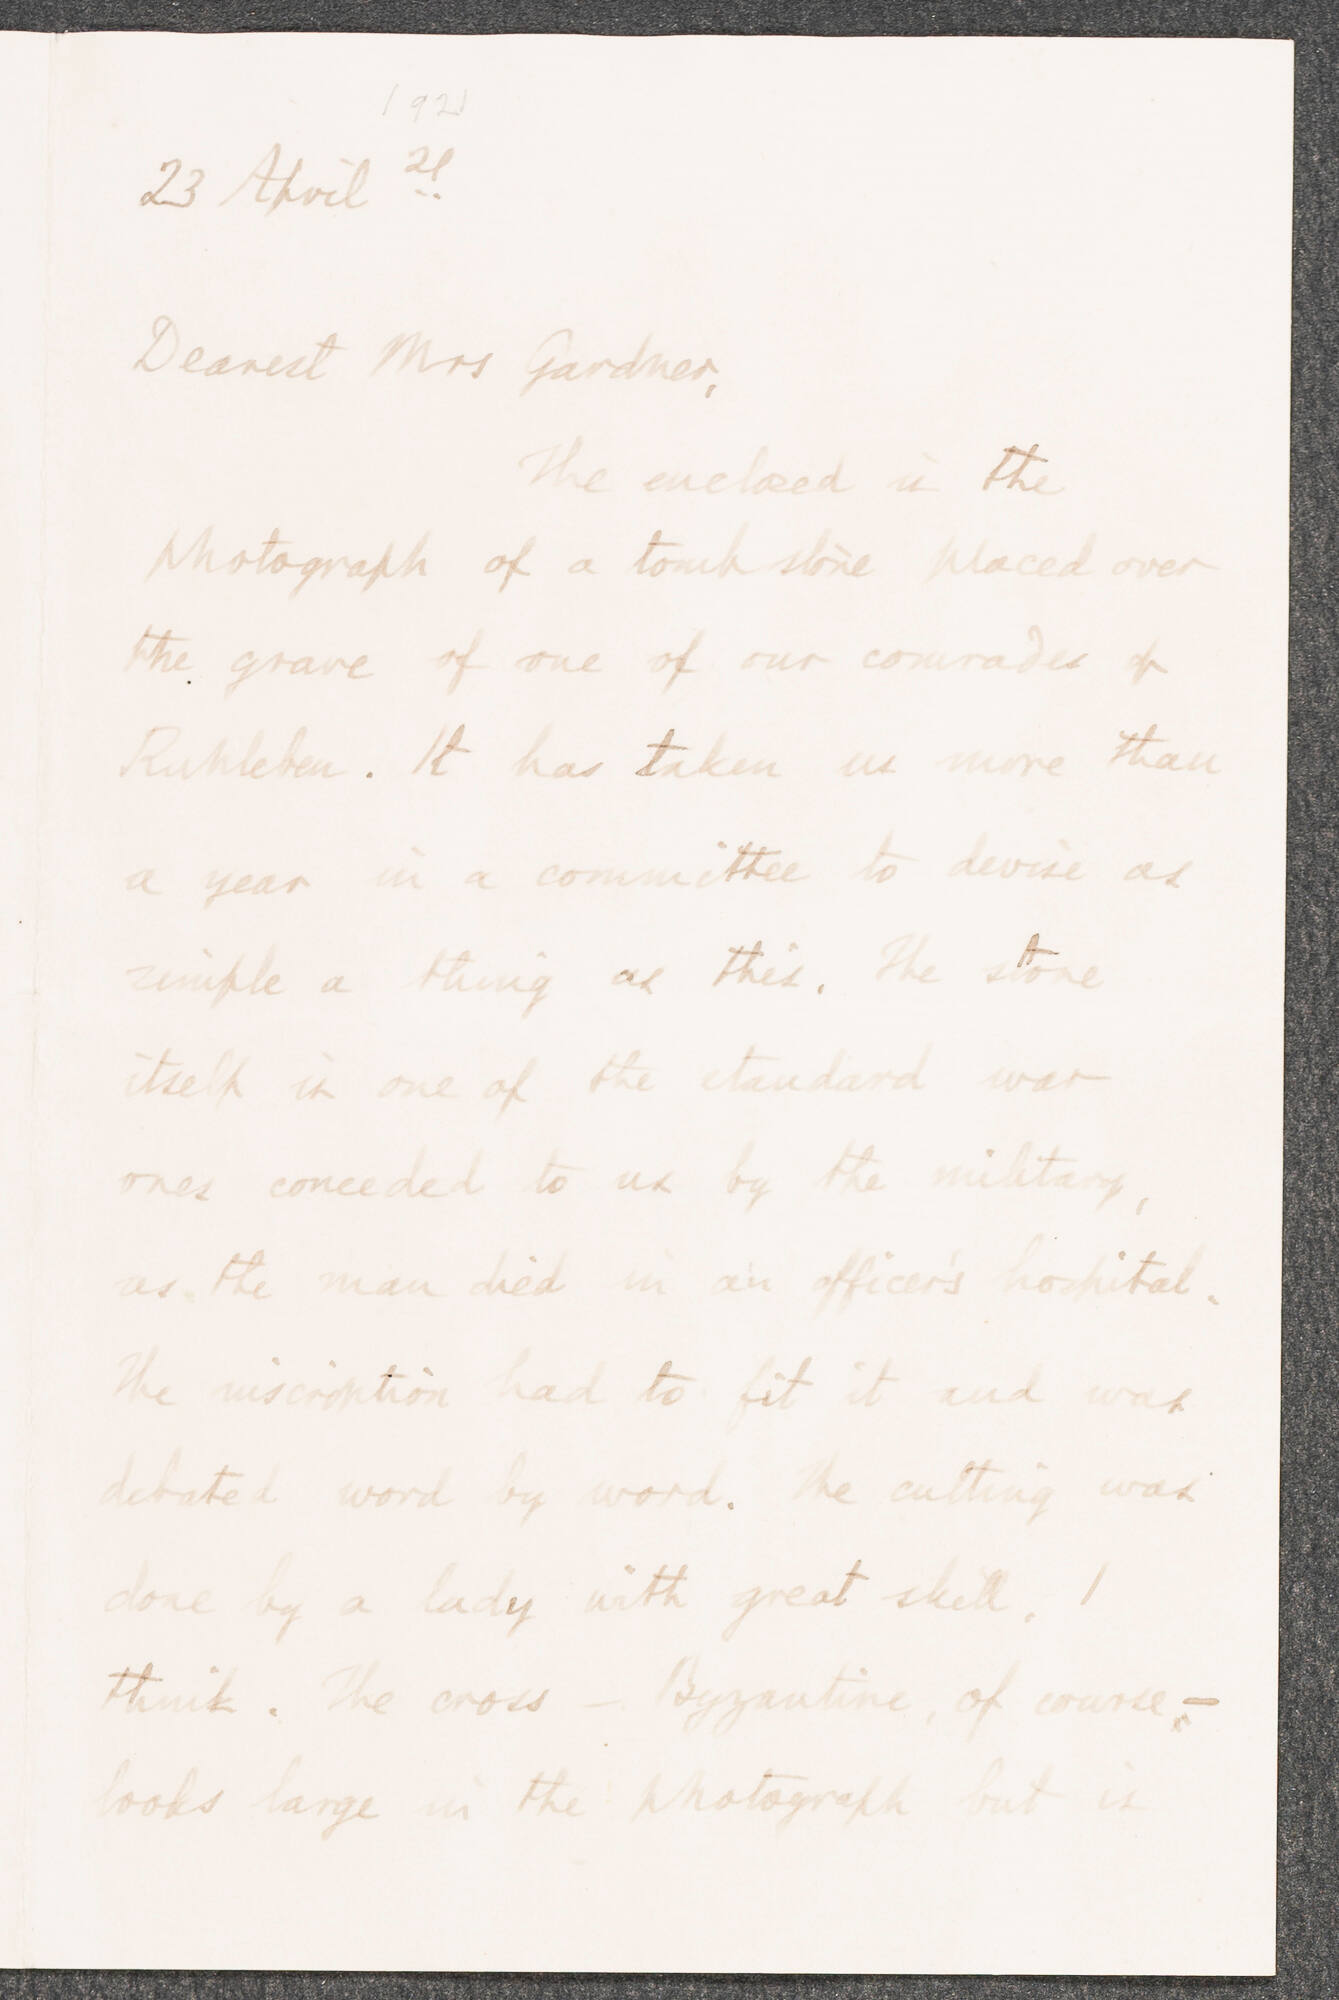 1921
23 April 21
Dearest Mrs Gardner,
The enclosed is the
photograph of a tomb stone placed over
the grave of one of our comrades of
Ruhleben. It has taken us more than
a year in a committee to devise as
simple a thing as this. The stone
itself is one of the standard war
ones conceded to us by the military,
as the man died in an officer's hospital.
The inscription had to fit it and was
debated word by word. The cutting was
done by a lady with great skill, I
think. The cross – Byzantine, of course, –
looks large in the photograph but is